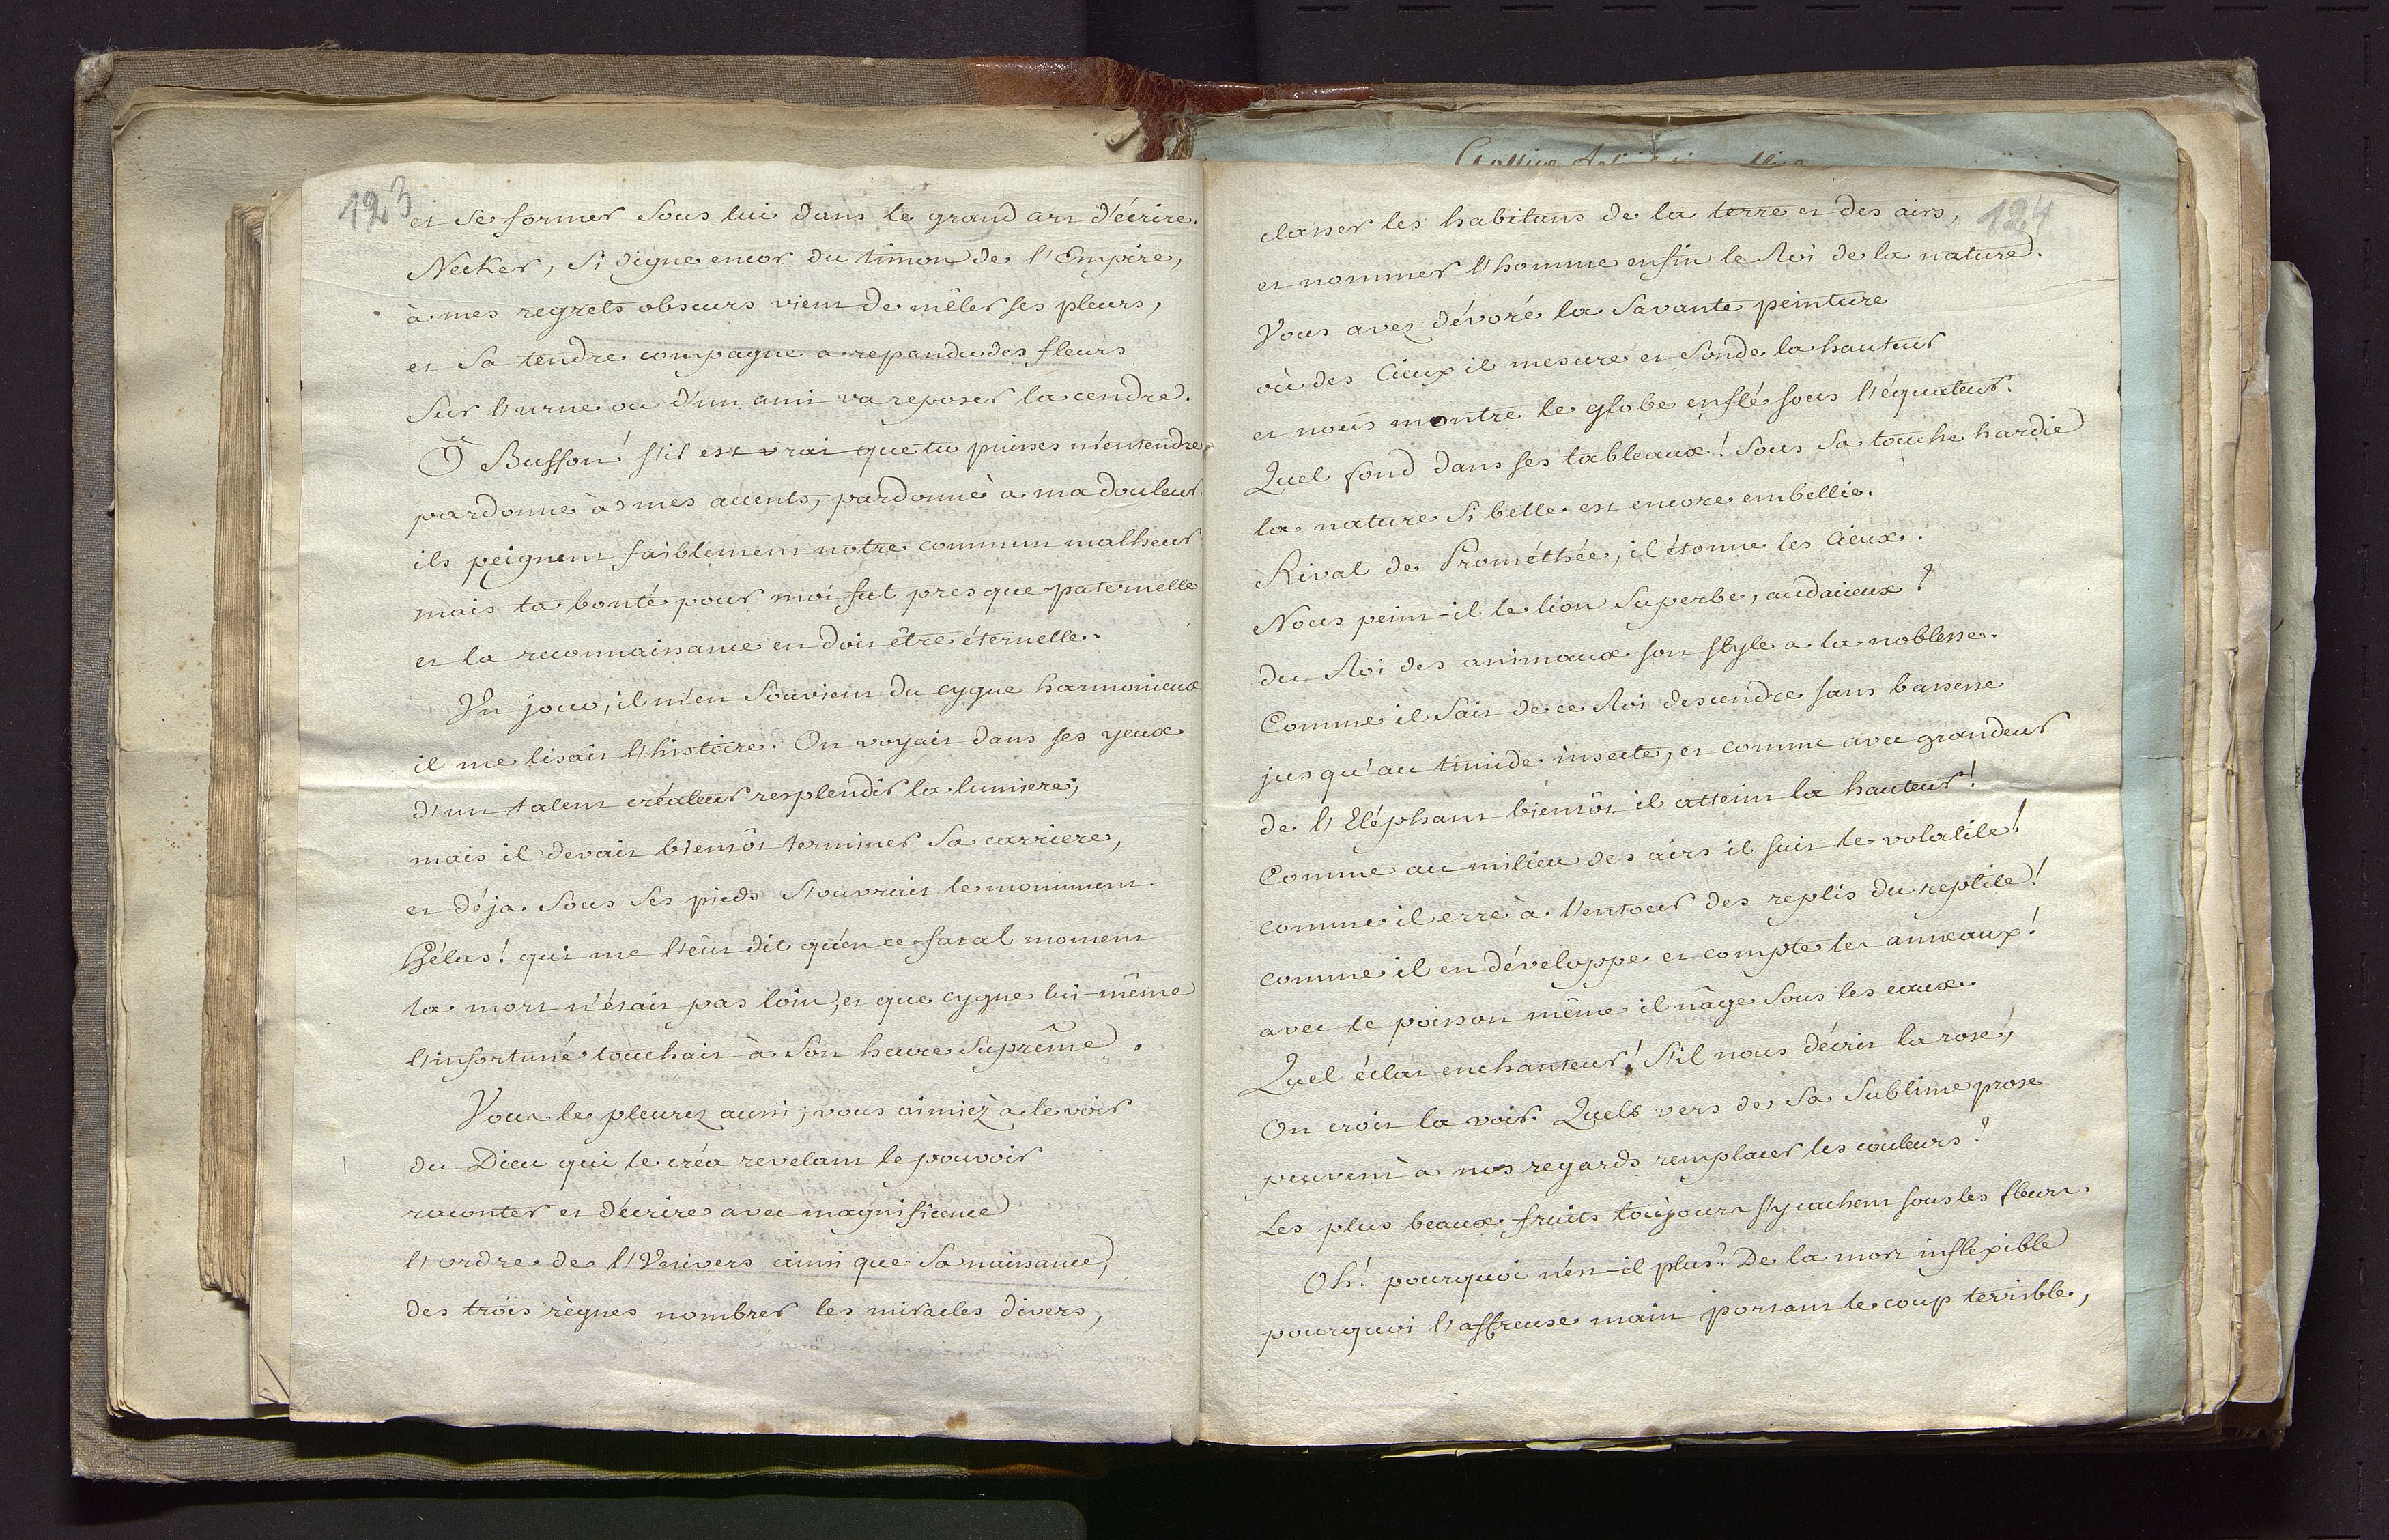 123
et se former sous lui dans le grand art d'écrire.
Necker, si digne encor du timon de l'Empire,
à mes regrets obscurs vient de mêler ses pleurs,
et sa tendre compagne a repandu des fleurs
sur l'urne ou d'un ami va reposer la cendre.
Ô Buffon! s'il est vrai que tu puisses m'entendre
pardonne à mes accents, pardonne à ma douleur.
ils peignent faiblement notre commun malheur
mais ta bonté pour moi fut presque paternelle
et la reconnaissance en doit être éternelle.
Un jour, il m'en souvient du cygne harmonieux
il me lisait l'histoire. On voyait dans ses yeux
d'un talent créateur resplendir la lumiere;
mais il devait bientôt terminer sa carriere,
et déja sous ses pieds s'ouvrait le monument.
Hélas! qui me l'eût dit qu'en ce fatal moment
la mort n'était pas loin, et que cygne lui-même
l'infortuné touchait à son heure suprême.
Vous le pleurez aussi; vous aimiez a le voir
du Dieu qui le créa revelant le pouvoir
raconter et décrire avec magnificence
l'ordre de l'Univers ainsi que sa naissance,
des trois règnes nombrer les miracles divers,
124
classer les habitans de la terre et des airs,
et nommer l'homme enfin le Roi de la nature.
Vous avez dévoré la savante peinture
où des Cieux il mesure et sonde la hauteur
et nous montre le globe enflé sous l'équateur.
Quel fond dans ses tableaux! sous sa touche hardie
la nature si belle est encore embellie.
Rival de Prométhée, il étonne les Cieux.
Nous peint-il le lion superbe, audacieux?
du Roi des animaux son style a la noblesse.
Comme il sait de ce Roi descendre sans bassesse
jusqu'au timide insecte, et comme avec grandeur
de l'Eléphant bientôt il atteint la hauteur!
Comme au milieu des airs il suit le volatile!
comme il erre à l'entour des replis du reptile!
comme il en développe et compte les anneaux!
avec le poisson même il nâge sous les eaux.
Quel éclat enchanteur! S'il nous décrit la rose,
On croit la voir. Quels vers de sa sublime prose
peuvent à nos regards remplacer les couleurs?
Les plus beaux fruits toujours s'y cachent sous les fleurs.
Oh! pourquoi n'est-il plus? De la mort inflexible
pourquoi l'affreuse main portant le coup terrible,